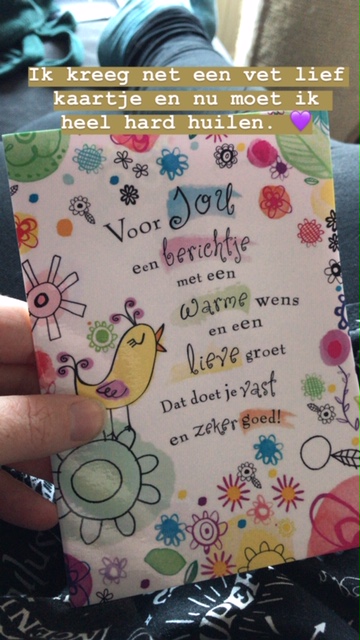 Ik kreeg net een vet lief
kaartje en nu moet ik
heel hard huilen. 💜
Voor Jou
een berichtje
met een
warme wens
en een
lieve groet
Dat doet je vast
en zeker goed!